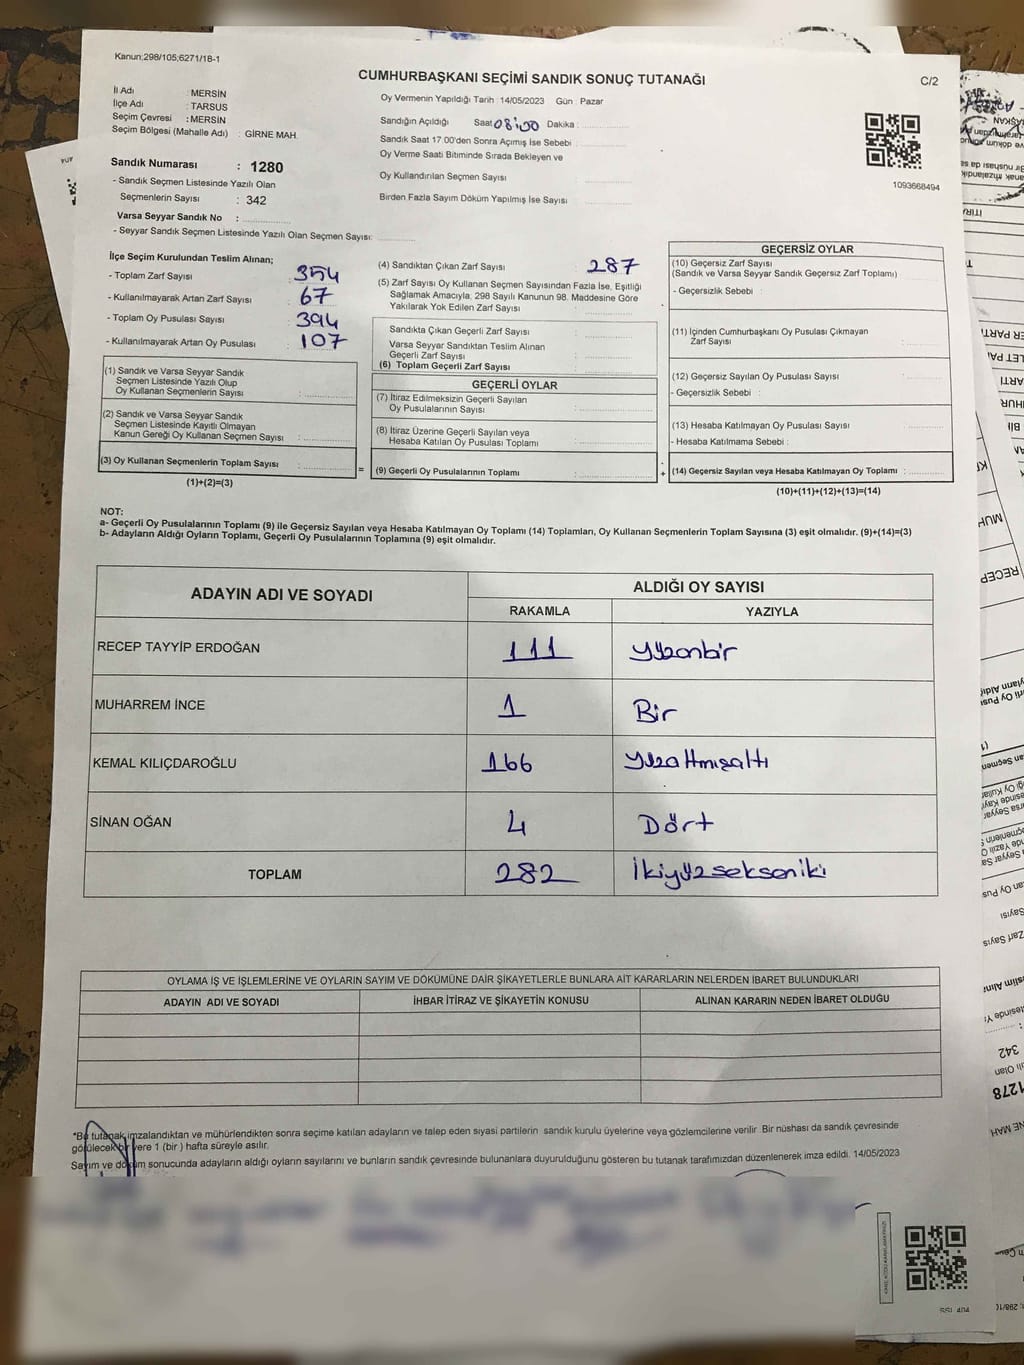 Kanun:298/105;6271/18-1
CUMHURBAŞKANI SEÇİMİ SANDIK SONUÇ TUTANAĞI
C/2
İl Adı : MERSİN
İlçe Adı : TARSUS
Seçim Çevresi : MERSİN
Seçim Bölgesi (Mahalle Adı) : GİRNE MAH.
Oy Vermenin Yapıldığı Tarih : 14/05/2023 Gün : Pazar
Sandığın Açıldığı Saat 08:00 Dakika :
Sandık Saat 17:00'den Sonra Açımış İse Sebebi :
Oy Verme Saati Bitiminde Sırada Bekleyen ve
Oy Kullandırılan Seçmen Sayısı :
Birden Fazla Sayım Döküm Yapılmış İse Sayısı :
1093668494
Sandık Numarası : 1280
- Sandık Seçmen Listesinde Yazılı Olan
Seçmenlerin Sayısı : 342
Varsa Seyyar Sandık No :
- Seyyar Sandık Seçmen Listesinde Yazılı Olan Seçmen Sayısı:
İlçe Seçim Kurulundan Teslim Alınan;
- Toplam Zarf Sayısı : 354
- Kullanılmayarak Artan Zarf Sayısı : 67
- Toplam Oy Pusulası Sayısı : 394
- Kullanılmayarak Artan Oy Pusulası : 107
(1) Sandık ve Varsa Seyyar Sandık
Seçmen Listesinde Yazılı Olup
Oy Kullanan Seçmenlerin Sayısı :
(2) Sandık ve Varsa Seyyar Sandık
Seçmen Listesinde Kayıtlı Olmayan
Kanun Gereği Oy Kullanan Seçmen Sayısı :
(3) Oy Kullanan Seçmenlerin Toplam Sayısı :
(1)+(2)=(3)
=
(4) Sandıktan Çıkan Zarf Sayısı : 287
(5) Zarf Sayısı Oy Kullanan Seçmen Sayısından Fazla İse, Eşitliği
Sağlamak Amacıyla, 298 Sayılı Kanunun 98. Maddesine Göre
Yakılarak Yok Edilen Zarf Sayısı :
Sandıkta Çıkan Geçerli Zarf Sayısı :
Varsa Seyyar Sandıktan Teslim Alınan
Geçerli Zarf Sayısı :
(6) Toplam Geçerli Zarf Sayısı :
GEÇERLİ OYLAR
(7) İtiraz Edilmeksizin Geçerli Sayılan
Oy Pusulalarının Sayısı :
(8) İtiraz Üzerine Geçerli Sayılan veya
Hesaba Katılan Oy Pusulası Toplamı :
(9) Geçerli Oy Pusulalarının Toplamı :
+
GEÇERSİZ OYLAR
(10) Geçersiz Zarf Sayısı :
(Sandık ve Varsa Seyyar Sandık Geçersiz Zarf Toplamı)
- Geçersizlik Sebebi :
(11) İçinden Cumhurbaşkanı Oy Pusulası Çıkmayan
Zarf Sayısı :
(12) Geçersiz Sayılan Oy Pusulası Sayısı :
- Geçersizlik Sebebi :
(13) Hesaba Katılmayan Oy Pusulası Sayısı :
- Hesaba Katılmama Sebebi :
(14) Geçersiz Sayılan veya Hesaba Katılmayan Oy Toplamı :
(10)+(11)+(12)+(13)=(14)
NOT:
a- Geçerli Oy Pusulalarının Toplamı (9) ile Geçersiz Sayılan veya Hesaba Katılmayan Oy Toplamı (14) Toplamları, Oy Kullanan Seçmenlerin Toplam Sayısına (3) eşit olmalıdır. (9)+(14)=(3)
b- Adayların Aldığı Oyların Toplamı, Geçerli Oy Pusulalarının Toplamına (9) eşit olmalıdır.
ADAYIN ADI VE SOYADI ALDIĞI OY SAYISI
RAKAMLA YAZIYLA
RECEP TAYYİP ERDOĞAN 111 yüzonbir
MUHARREM İNCE 1 Bir
KEMAL KILIÇDAROĞLU 166 yüzaltmışaltı
SİNAN OĞAN 4 Dört
TOPLAM 282 İkiyüzsekseniki
OYLAMA İŞ VE İŞLEMLERİNE VE OYLARIN SAYIM VE DÖKÜMÜNE DAİR ŞİKAYETLERLE BUNLARA AİT KARARLARIN NELERDEN İBARET BULUNDUKLARI
ADAYIN ADI VE SOYADI İHBAR İTİRAZ VE ŞİKAYETİN KONUSU ALINAN KARARIN NEDEN İBARET OLDUĞU
*Bu tutanak imzalandıktan ve mühürlendikten sonra seçime katılan adayların ve talep eden siyasi partilerin sandık kurulu üyelerine veya gözlemcilerine verilir. Bir nüshası da sandık çevresinde
görülecek bir yere 1 (bir) hafta süreyle asılır.
Sayım ve döküm sonucunda adayların aldığı oyların sayılarını ve bunların sandık çevresinde bulunanlara duyurulduğunu gösteren bu tutanak tarafımızdan düzenlenerek imza edildi. 14/05/2023
342
1278